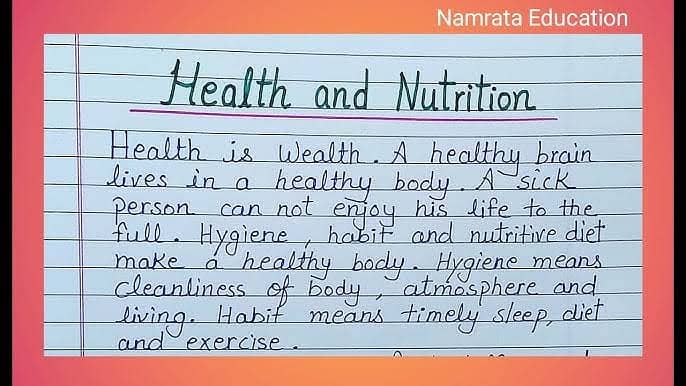 Namrata Education
Health and Nutrition
Health is Wealth. A healthy brain
lives in a healthy body. A sick
person can not enjoy his life to the
full. Hygiene, habit and nutritive diet
make a healthy body. Hygiene means
cleanliness of body, atmosphere and
living. Habit means timely sleep, diet
and exercise.